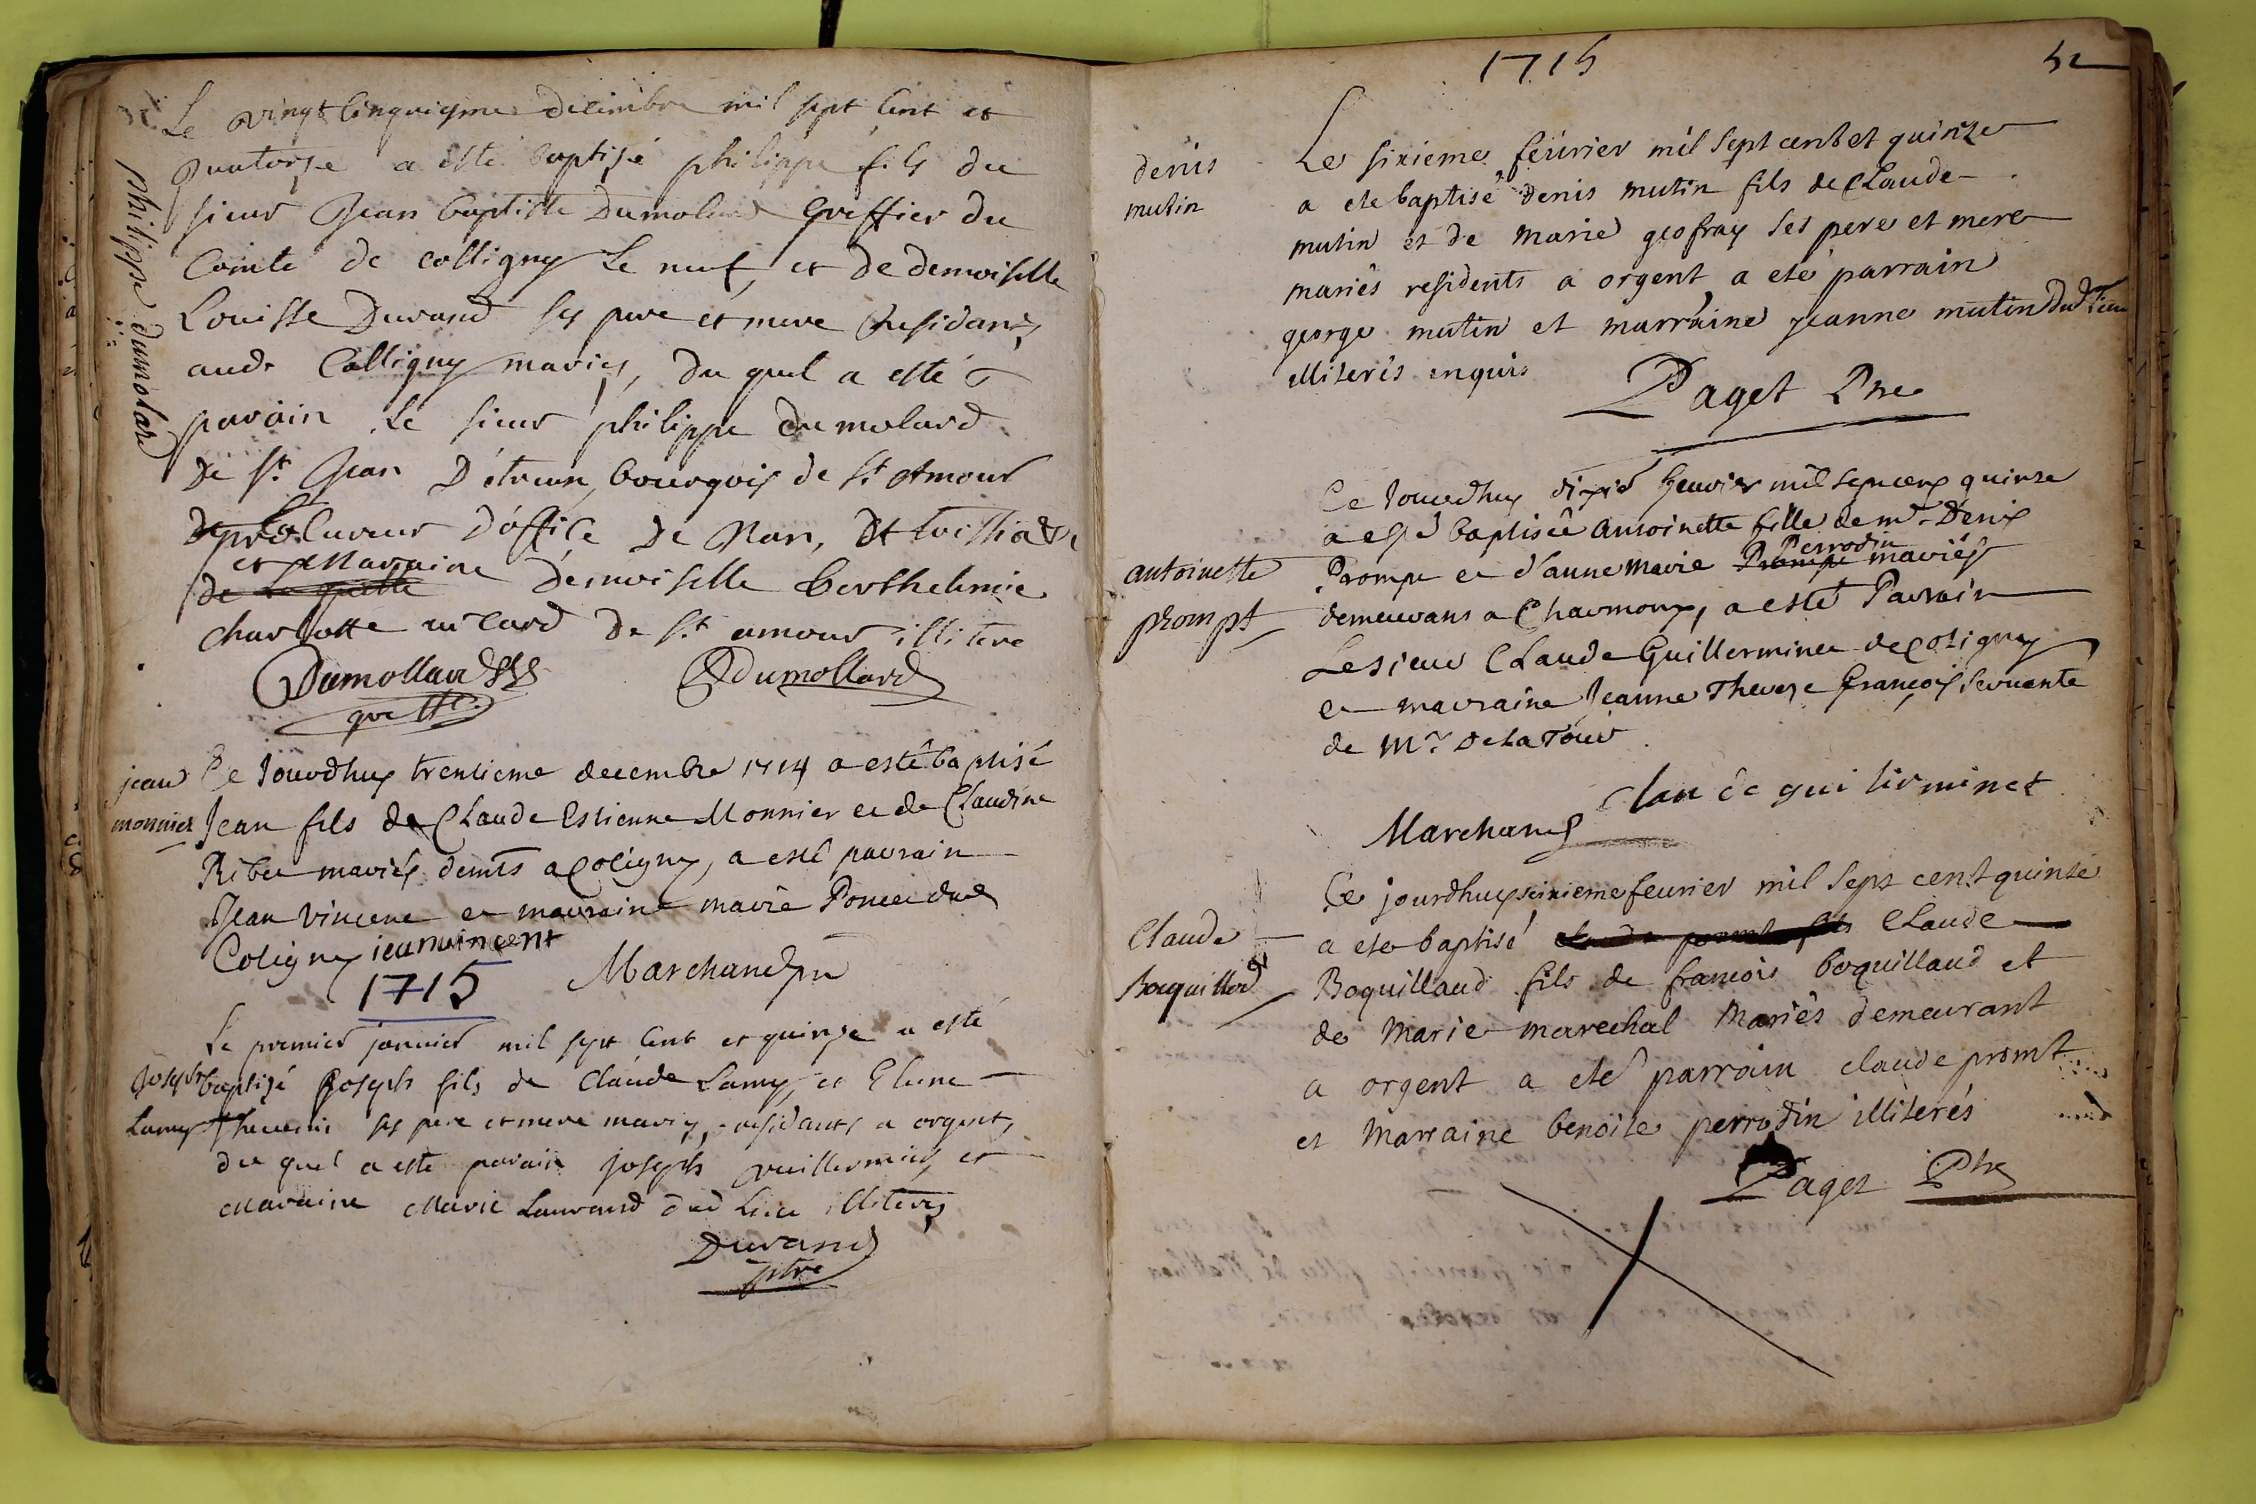 philippe dumolard
Le vingt Cinquiesme decembre mil sept Cent et
quatorze a esté baptisé philippe fils du
sieur Jean baptiste Dumolard Greffier du
Comté de colligny Le neuf, et de demoiselle
Louisse Durand ses pere et mere Residants
aud. Colligny mariés, du quel a esté
parain Le sieur philippe Dumolard
De St. Jean D'étreux, bourgois de St Amour
procureur d'office de
et Maraine Demoiselle berthelmie
de laquelle
Charlotte de St. amour illitere
Dumollard
greff.
Dumollard
jean
monnier
Ce Jourdhuy trentieme decembre 1714 a esté baptisé
Jean fils de Claude Estienne Monnier et de Claudine
mariés demts a Coligny, a esté parrain
Jean Vincent et marraine marie Poncet dud
Coligny jean vincent
Marchand ptre
1715
Joseph
Lamy
Le premier janvier mil sept Cent et quinze a esté
baptizé Joseph fils de Claude Lamy, et
Thevenin ses pere et mere mariés, residants a orgent,
du quel a esté parain joseph vuillermin, et
Maraine Marie Laurand dud Lieu illiteres
Durand
ptre
1715
52
denis
mutin
Le sixieme feurier mil sept cent et quinze
a ete baptisé denis mutin fils de Claude
mutin et de marie geofray ses pere et mere
mariés residents a orgent a eté parrain
george mutin et marraine jeanne mutin dud lieu
illiterés enquis
Paget Ptre
antoinette
prompt
Ce Jourdhuy Jeanvier mil sept cent quinze
a esté baptisée Antoinette fille de mr. Denis
Prompt et d'anne marie Prompt Perrodin mariés
demeurans a Charmoux, a esté Parrain
Le sieur Claude Guillerminet de Coligny
et marraine Jeanne Therese François servante
de Mr. De La Tour
Clau de gui lir minet
Marchand
Claude
Boquillod
Ce jourdhuy seixieme feurier mil sept cent quinze
a ete baptisé claude promt fils Claude
Boquillaud fils de francois boquillaud et
de Marie marechal Mariés demeurant
a orgent a eté parrain claude promt
et Marraine benoite perrodin illiterés
Paget Ptre